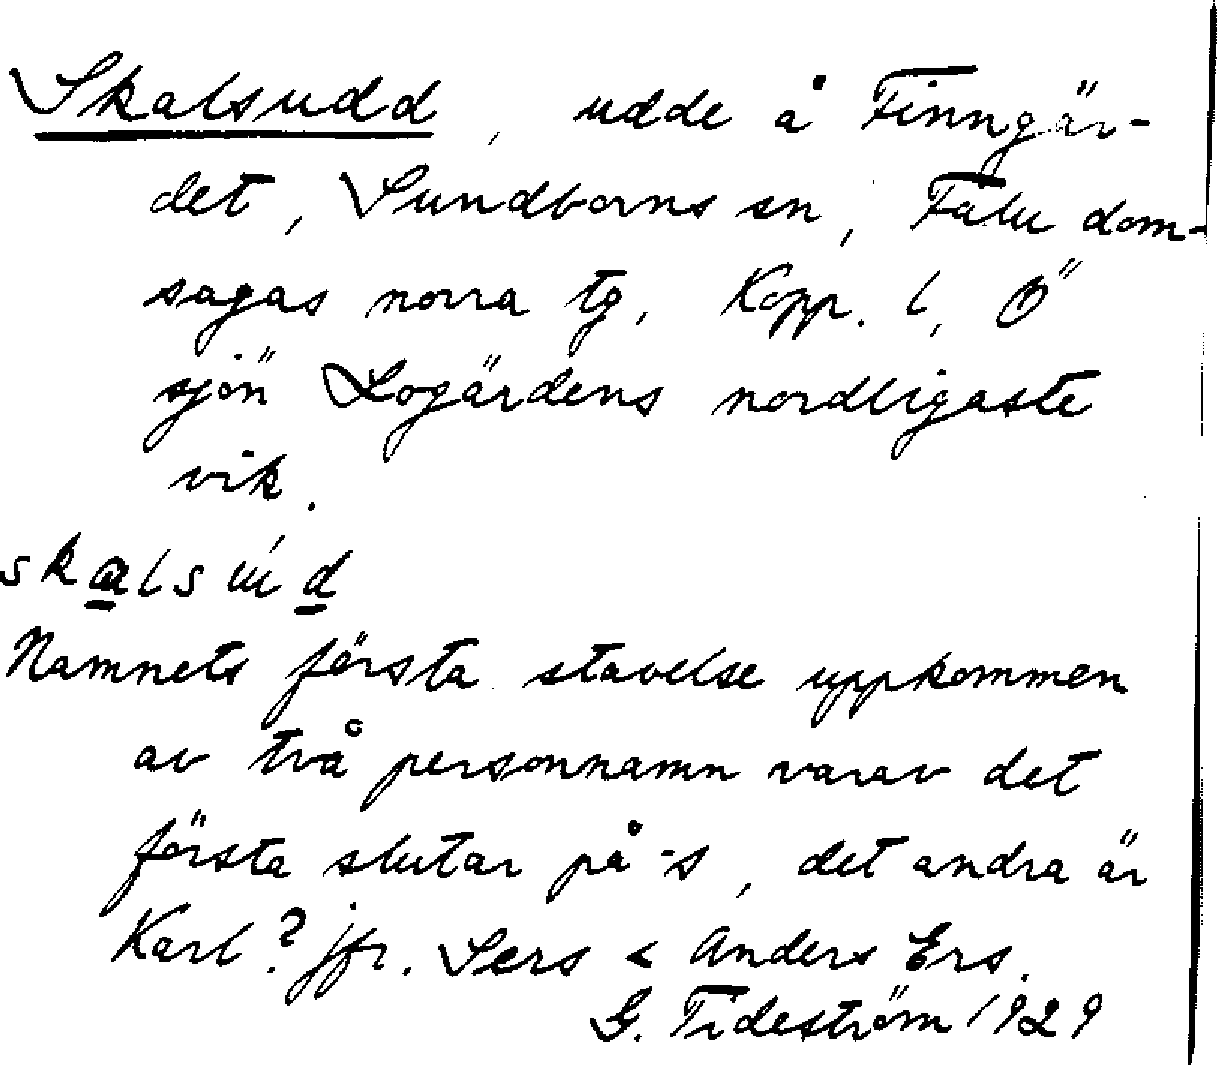 Skalsudd, udde å Finngär-
det, Sundborns sn, Falu dom-
sagas norra tg, Kopp. l, Ö
sjön Logärdens nordligaste
vik.
skals úd
Namnets första stavelse uppkommen
av två personnamn varav det
första slutar på -s, det andra är
Karl? jfr. Sers < Anders Ers.
G. Tideström 1929